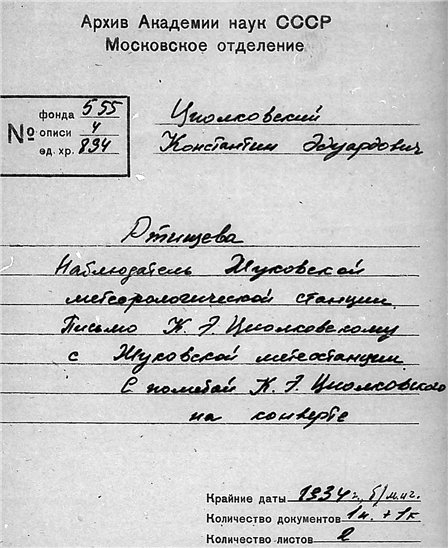 Архив Академии наук СССР
Московское отделение
№
фонда 555
описи 4
ед. хр. 834
Циолковский
Константин Эдуардович
Ртищева
Наблюдатель Жуковской
метеорологической станции.
Письмо К. Э. Циолковскому
с Жуковской метеостанции.
С пометой К. Э. Циолковского
на конверте
Крайние даты 1934 г., б/м. и г.
Количество документов 1п. + 1к
Количество листов 2